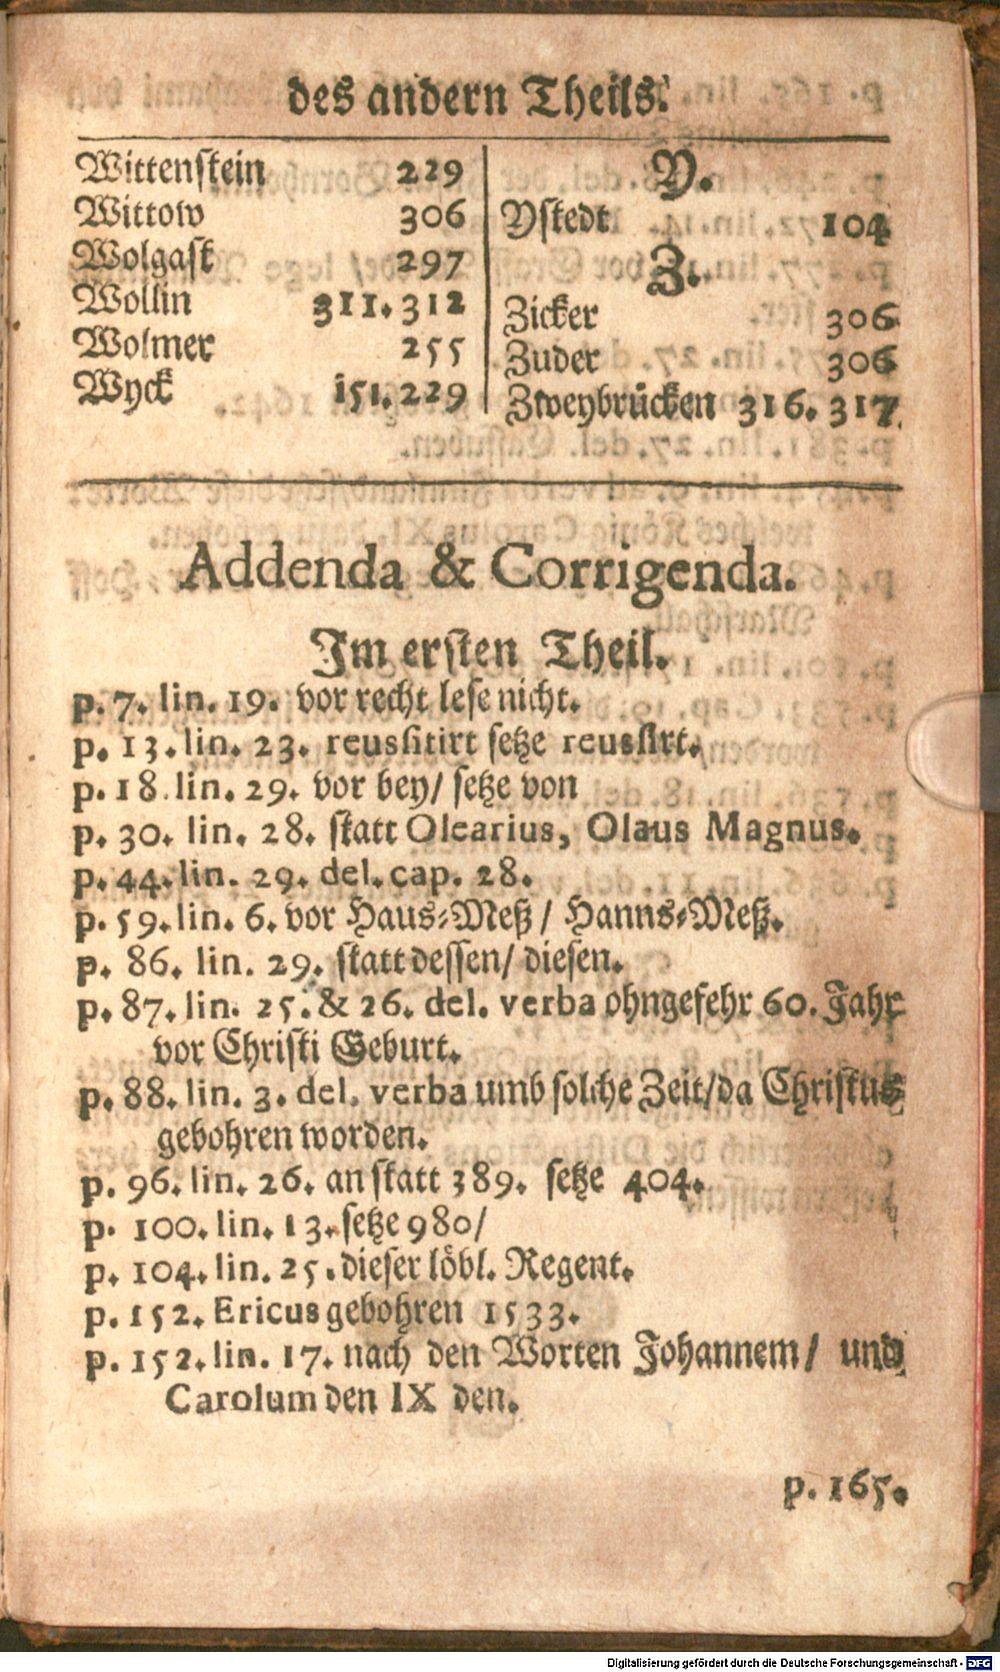 des andern Theils.
Wittenstein 229
Wittow 306
Wolgast 297
Wollin 311. 312
Wolmer 255
Wyck 151. 229
Y.
Ystedt 104
Z.
Zicker 306
Zuder 306
Zweybrücken 316. 317.
Addenda & Corrigenda.
Im ersten Theil.
p. 7. lin. 19. vor recht lese nicht.
p. 13. lin. 23. reussitirt setze reussirt.
p. 18. lin. 29. vor bey/ setze von
p. 30. lin. 28. statt Olearius, Olaus Magnus.
p. 44. lin. 29. del. cap. 28.
p. 59. lin. 6. vor Haus-Meß / Hanns-Meß.
p. 86. lin. 29. statt dessen/ diesen.
p. 87. lin. 25. & 26. del. verba ohngefehr 60. Jahr
vor Christi Geburt.
p. 88. lin. 3. del. verba umb solche Zeit/da Christus
gebohren worden.
p. 96. lin. 26. an statt 389. setze 404.
p. 100. lin. 13. setze 980/
p. 104. lin. 25. dieser löbl. Regent.
p. 152. Ericus gebohren 1533.
p. 152. lin. 17. nach den Worten Johannem / und
Carolum den IX den.
p. 165.
Digitalisierung gefördert durch die Deutsche Forschungsgemeinschaft - DFG